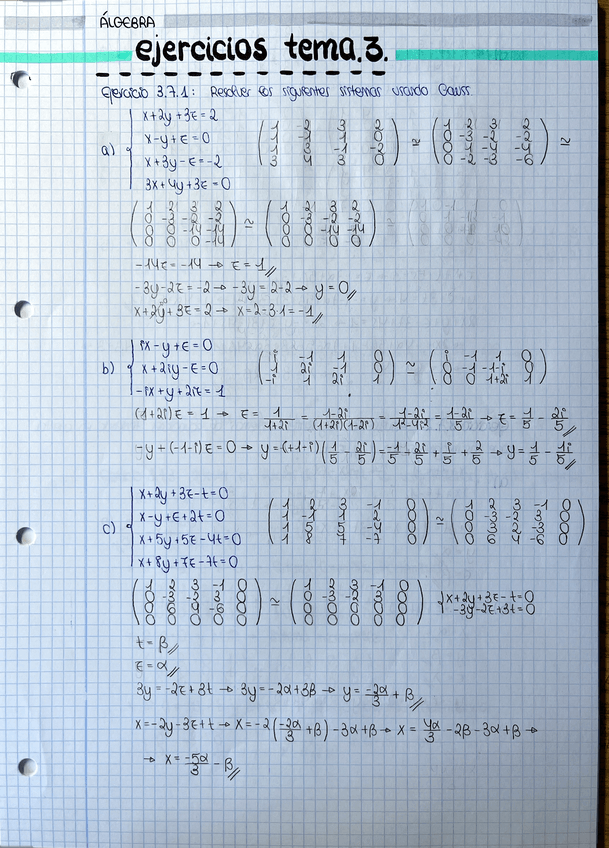 ÁLGEBRA
ejercicios tema.3.
Ejercicio 3.7.1: Resolver los siguientes sistemas usando Gauss
a) { x+2y+3z=2
x-y+z=0
x+3y-z=-2
3x+4y+3z=0
( 1 2 3 2 ; 1 -1 1 0 ; 1 3 -1 -2 ; 3 4 3 0 ) ≃ ( 1 2 3 2 ; 0 -3 -2 -2 ; 0 1 -4 -4 ; 0 -2 -3 -6 ) ≃
( 1 2 3 2 ; 0 -3 -2 -2 ; 0 0 -14 -14 ; 0 0 0 -14 ) ≃ ( 1 2 3 2 ; 0 -3 -2 -2 ; 0 0 -14 -14 ; 0 0 0 0 )
-14z=-14 → z=1//
-3y-2z=-2 → -3y=2-2 → y=0//
x+2y+3z=2 → x=2-3·1=-1//
b) { ix-y+z=0
x+2iy-z=0
-ix+y+2iz=1
( i -1 1 0 ; 1 2i -1 0 ; -i 1 2i 1 ) ≃ ( i -1 1 0 ; 0 -1 -1-i 0 ; 0 0 1+2i 1 )
(1+2i)z=1 → z=1/(1+2i)=(1-2i)/((1+2i)(1-2i))=(1-2i)/(1²-4i²)=(1-2i)/5 → z=1/5-2i/5//
-y+(-1-i)z=0 → y=(+1-i)(1/5-2i/5)=-1/5+2i/5+i/5+2/5 → y=1/5-1i/5//
c) { x+2y+3z-t=0
x-y+z+2t=0
x+5y+5z-4t=0
x+8y+7z-7t=0
( 1 2 3 -1 0 ; 1 -1 1 2 0 ; 1 5 5 -4 0 ; 1 8 7 -7 0 ) ≃ ( 1 2 3 -1 0 ; 0 -3 -2 3 0 ; 0 3 2 -3 0 ; 0 6 4 -6 0 )
( 1 2 3 -1 0 ; 0 -3 -2 3 0 ; 0 0 0 0 0 ; 0 6 4 -6 0 ) ≃ ( 1 2 3 -1 0 ; 0 -3 -2 3 0 ; 0 0 0 0 0 ; 0 0 0 0 0 ) { x+2y+3z-t=0
-3y-2z+3t=0
t=β//
z=α//
3y=-2z+3t → 3y=-2α+3β → y=-2α/3+β//
x=-2y-3z+t → x=-2(-2α/3+β)-3α+β → x=4α/3-2β-3α+β →
→ x=-5α/3-β//